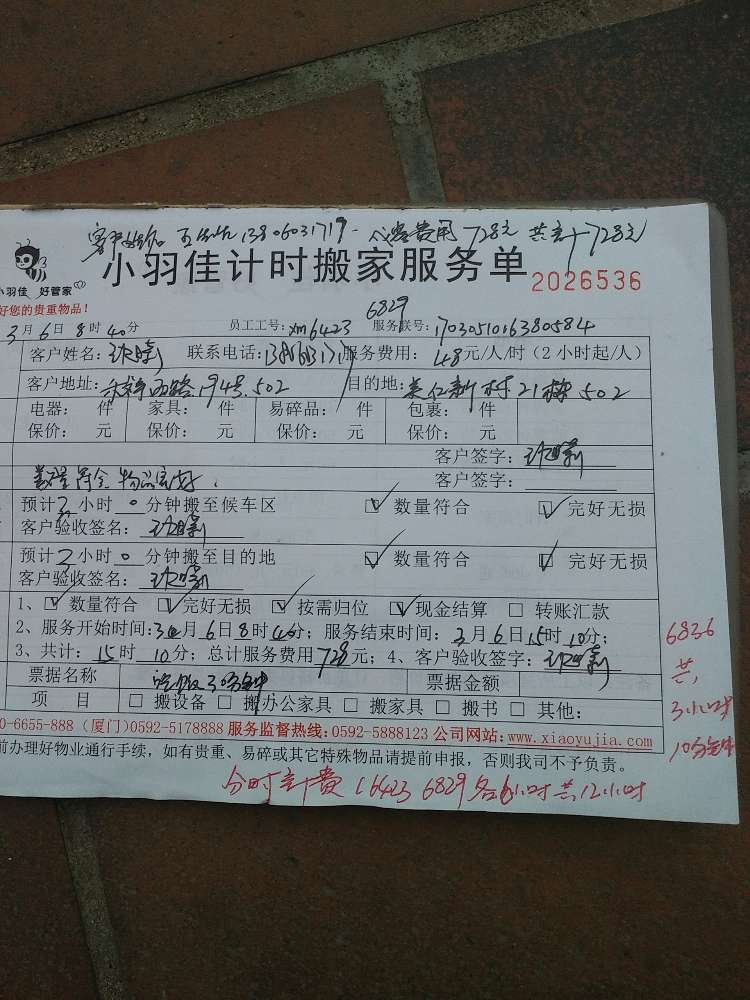 客户 13806031719 费用 728元 共计728元
小羽佳计时搬家服务单 2026536
小羽佳 好管家
好您的贵重物品!
6829
3月6日8时40分 员工工号:xm6423 服务联号:1703051016380584
客户姓名: 联系电话: 服务费用:48元/人/时(2小时起/人)
客户地址: 西路194号.502 目的地: 新村21栋502
电器: 件 家具: 件 易碎品: 件 包裹: 件
保价: 元 保价: 元 保价: 元 保价: 元
客户签字:
数量符合 物品完好. 客户签字:
预计2小时0分钟搬至候车区 数量符合 完好无损
客户验收签名:
预计2小时0分钟搬至目的地 数量符合 完好无损
客户验收签名:
1、数量符合 完好无损 按需归位 现金结算 转账汇款
2、服务开始时间:3月6日8时40分;服务结束时间:3月6日15时10分;
3、共计:15时10分;总计服务费用728元;4、客户验收签字:
票据名称 吃饭30分钟 票据金额
项 目 搬设备 搬办公家具 搬家具 搬书 其他:
0-6655-888 (厦门)0592-5178888 服务监督热线:0592-5888123 公司网站:www.xiaoyujia.com
前办理好物业通行手续,如有贵重、易碎或其它特殊物品请提前申报,否则我司不予负责。
6836
共,
3小时
10分钟
分时计费 6423 6829各6小时共12小时